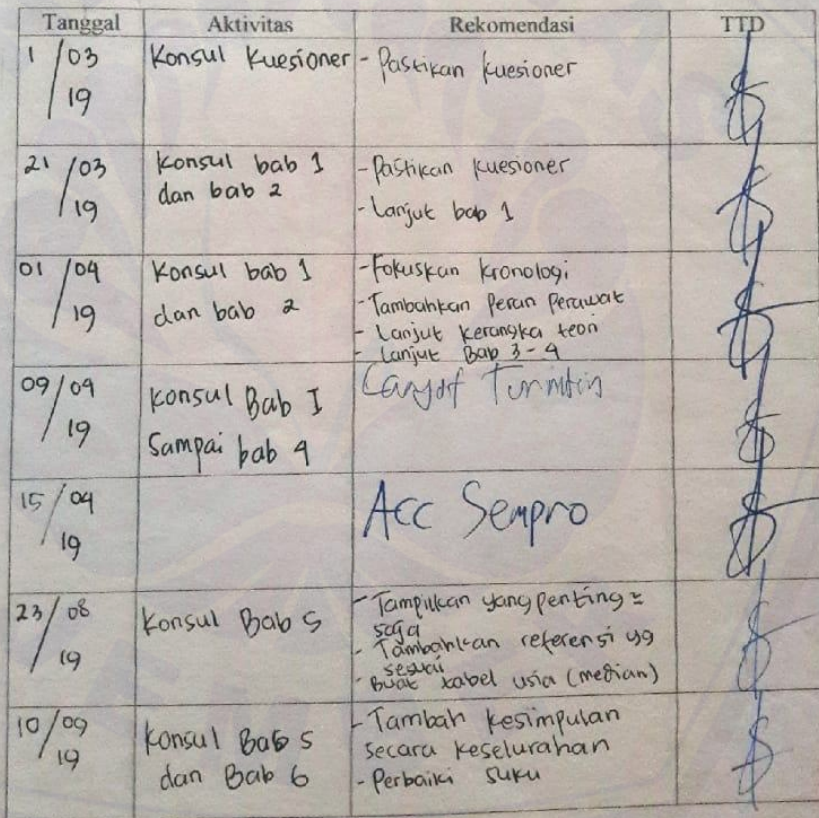 Tanggal Aktivitas Rekomendasi TTD
1/03/19 Konsul Kuesioner - Pastikan kuesioner
21/03/19 Konsul bab 1 - Pastikan Kuesioner
dan bab 2 - Lanjut bab 1
01/04/19 Konsul bab 1 - Fokuskan kronologi
dan bab 2 - Tambahkan Peran Perawat
- Lanjut kerangka teori
- Lanjut Bab 3-4
09/04/19 Konsul Bab I
Sampai bab 4
15/04/19 Acc Sempro
23/08/19 Konsul Bab 5 - Tampilkan yang penting =
saja
- Tambahkan referensi yg
sesuai
- Buat tabel usia (median)
10/09/19 Konsul Bab 5 - Tambah kesimpulan
dan Bab 6 secara keselurahan
- Perbaiki suku